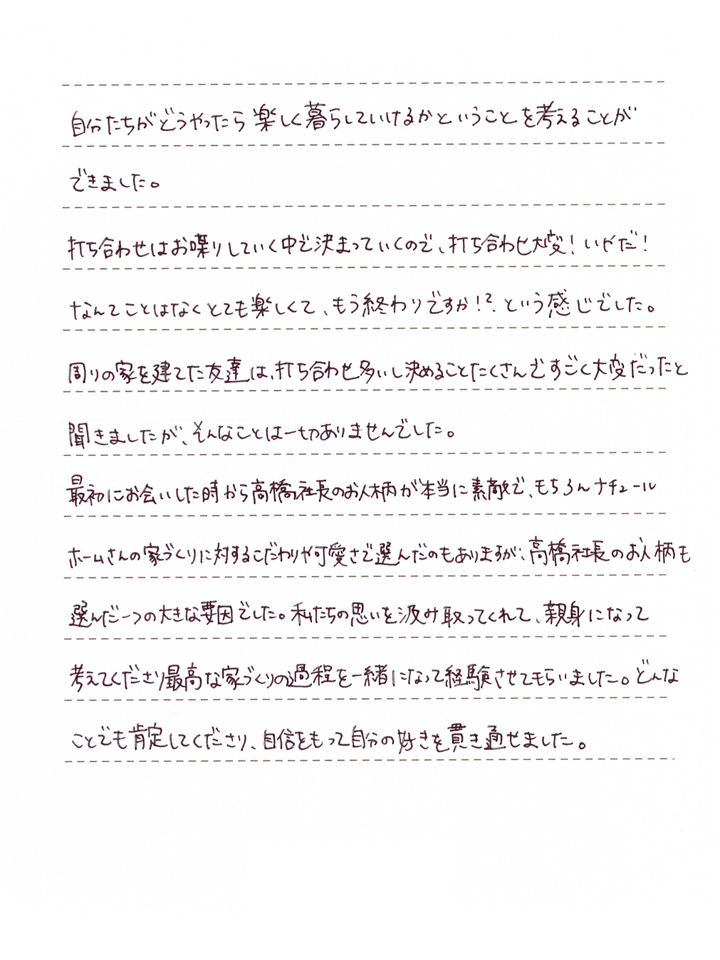 自分たちがどうやったら楽しく暮らしていけるかということを考えることが
できました。
打ち合わせはお喋りしていく中で決まっていくので、打ち合わせ大変！いやだ！
なんてことはなくとても楽しくて、もう終わりですか！？という感じでした。
周りの家を建てた友達は、打ち合わせ多いし決めることたくさんですごく大変だったと
聞きましたが、そんなことは一切ありませんでした。
最初にお会いした時から高橋社長のお人柄が本当に素敵で、もちろんナチュール
ホームさんの家づくりに対するこだわりや可愛さで選んだのもありますが、高橋社長のお人柄も
選んだ一つの大きな要因でした。私たちの思いを汲み取ってくれて、親身になって
考えてくださり最高な家づくりの過程を一緒になって経験させてもらいました。どんな
ことでも肯定してくださり、自信をもって自分の好きを貫き通せました。